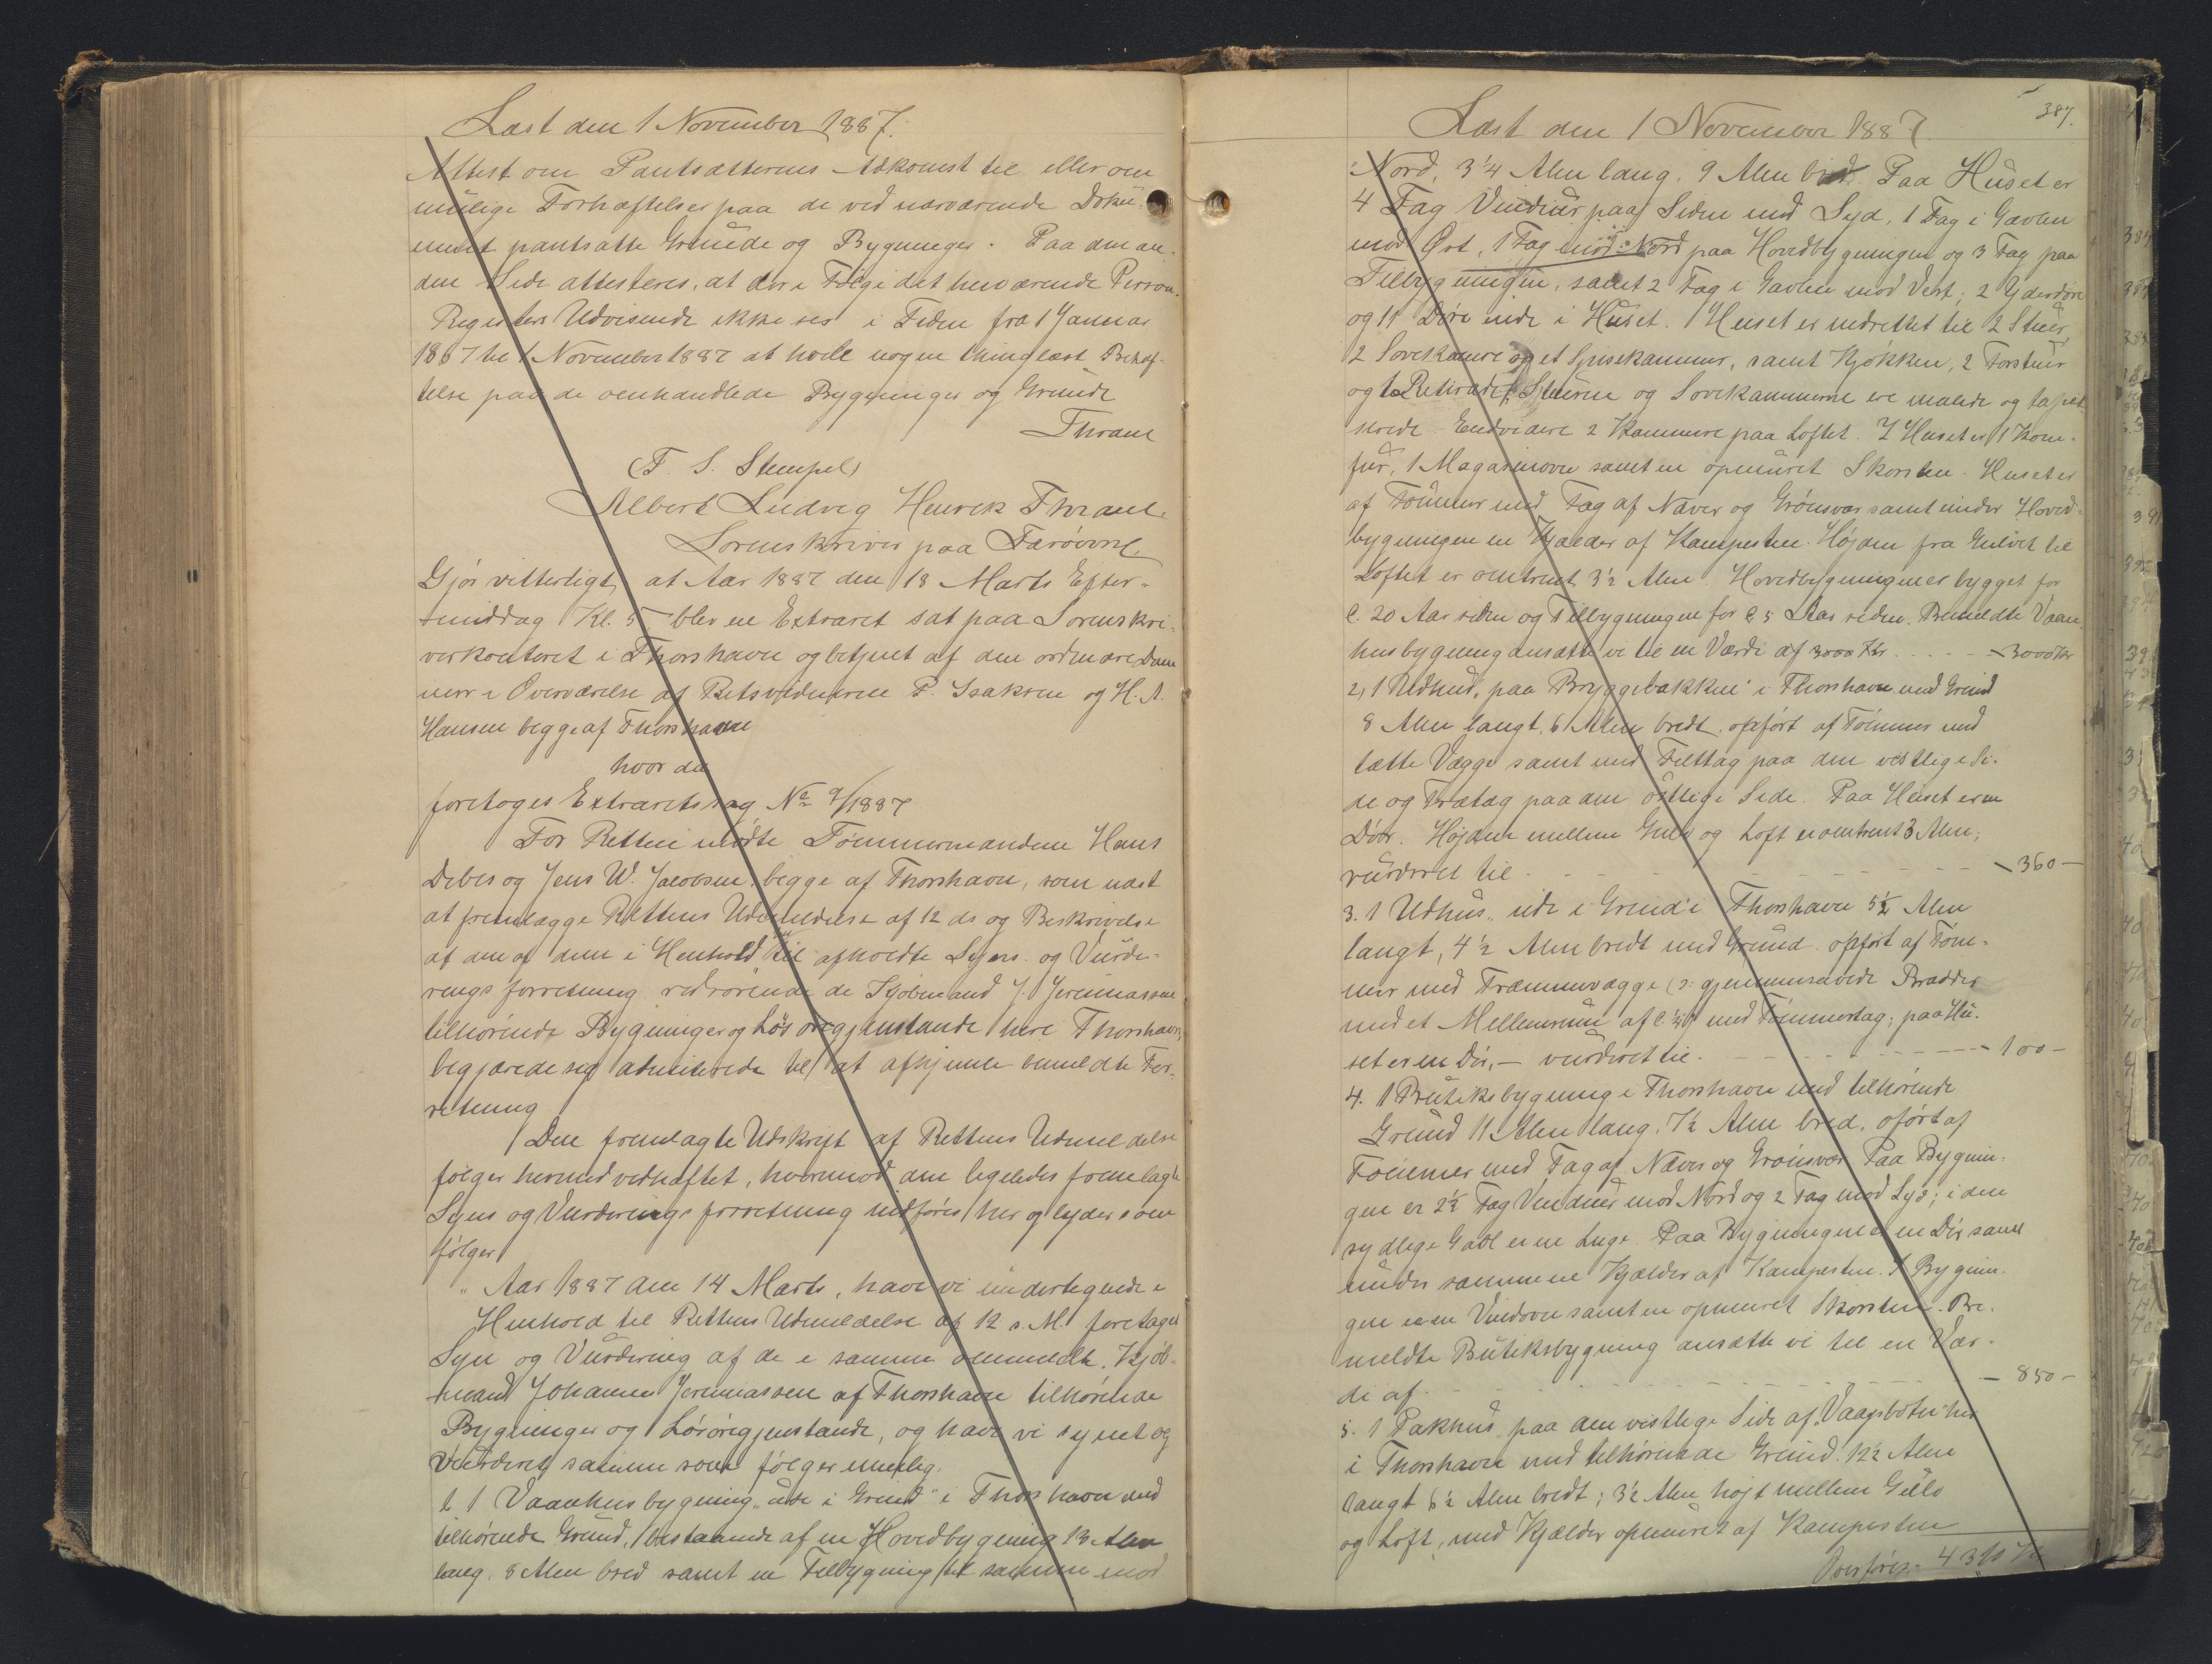 Læst den 1 November 1887.
Attest om Pantsætterens Adkomst til eller om
mulige Forhæftelser paa de ved nærværende Doku-
ment pantsatte Grunde og Bygninger. Paa den an-
den Side attesteres, at der i Følge det herværende Person-
Registers Udvisende ikke ses i Tiden fra 1 Januar
1867 til 1 November 1887 at hvile nogen thinglæst Behæf-
telse paa de omhandlede Bygninger og Grunde
Thrane
(T. S. Stempel)
Albert Ludvig Henrik Thrane
Sorenskriver paa Færøerne
Gjør vitterligt, at Aar 1887 den 18 Marts Efter-
middag Kl. 5 blev en Extraret sat paa Sorenskri-
verkontoret i Thorshavn og betjent af den ordinære Dom
mer i Overværelse af Retsvidnerne P. Isaksen og H. A.
Hansen begge af Thorshavn
hvor da
foretoges Extraretssag No 9/1887
For Retten mødte Tømmermændene Hans
Debes og Jens W. Jacobsen, begge af Thorshavn, som næst
at fremlægge Rettens Udmeldelse af 12 ds og Beskrivelse
af den af dem i Henhold til afholdte Syns- og Vurde-
rings forretning vedrørende de Kjøbmand J. Jeremiassen
tilhørende Bygninger og Løsøregjenstande her i Thorshavn,
begjærede sig admitterede til at afhjemle bemeldte For-
retning
Den fremlagte Udskrift af Rettens Udmeldelse
følger hermed vedhæftet, hvorimod den ligeledes fremlagte
Syns og Vurderings forretning indføres her og lyder som
følger
"Aar 1887 den 14 Marts, have vi undertegnede i
Henhold til Rettens Udmeldelse af 12 s. M. foretaget
Syn og Vurdering af de i samme ommeldte, Kjøb-
mand Johannes Jeremiassen af Thorshavn tilhørende
Bygninger og Løsøregjenstande, og have vi synet og
Vurderet samme som følger nemlig.
1. 1 Vaanhusbygning "ude i Grund" i Thorshavn med
tilhørende Grund, bestaaende af en Hovedbygning 13 Alen
lang, 8 Alen bred samt en Tilbygning til samme mod
387.
Læst den 1 November 1887
Nord, 3 1/4 Alen lang, 9 Alen bred. Paa Huset er
4 Fag Vinduer paa Siden mod Syd, 1 Fag i Gavlen
mod Øst, 1 Fag mod Nord paa Hovedbygningen og 3 Fag paa
Tilbygningen, samt 2 Fag i Gavlen mod Vest; 2 Yderdøre
og 11 Døre inde i Huset. Huset er indrettet til 2 Stuer,
2 Sovekamre og et Spisekammer, samt Kjøkken, 2 Forstuer
og 1 Retirade. Stuerne og Sovekammerne ere malede og tapet
serede. Endvidere 2 Kammere paa Loftet. I Huset er 1 Kom-
fur, 1 Magasinovn samt en opmuret Skorsten. Huset er
af Tømmer med Tag af Næver og Grønsvær samt under Hoved-
bygningen en Kjælder af Kampesten. Højden fra Gulvet til
Loftet er omtrent 3 1/2 Alen. Hovedbygningen er bygget for
c. 20 Aar siden og Tilbygningen for c 5 Aar siden. Bemeldte Vaan
husbygning ansætte vi til en Værdi af 3000 Kr. - 3000 Kr
2, 1 Udhus, paa Bryggebakken i Thorshavn med Grund
8 Alen langt, 6 Alen bredt, opført af Tømmer med
tætte Vægge samt med Filttag paa den vestlige Si-
de og Trætag paa den østlige Side. Paa Huset er en
Dør. Højden mellem Gulv og Loft er omtrent 3 Alen;
vurderet til - 360 -
3. 1 Udhus, ude i Grund i Thorshavn 5 1/2 Alen
langt, 4 1/2 Alen bredt med Grund opført af Tøm-
mer med Træmmevægge (o: gjennemsavede Brædder
med et Mellemrum af c. 1/4") med Tømmertag; paa Hu-
set er en Dør, - vurderet til - 100 -
4. 1 Butiksbygning i Thorshavn med tilhørende
Grund 11 Alen lang, 7 1/2 Alen bred, oført af
Tømmer med Tag af Næver og Grønsvær. Paa Bygnin-
gen er 2 1/2 Fag Vinduer mod Nord og 2 Fag mod Syd; i den
sydlige Gavl er en Luge. Paa Bygningen er en Dør samt
under sammen en Kjælder af Kampesten. I Bygnin-
gen er en Vindovn samt en opmuret Skorsten. Be-
meldte Butiksbygning ansætte vi til en Vær-
di af - 850 -
5. 1 Pakhus paa den vestlige Side af "Vaagsbotn" her
i Thorshavn med tilhørende Grund. 12 1/2 Alen
langt 6 1/2 Alen bredt; 3 1/2 Alen højt mellem Gulv
og Loft, med Kjælder opmuret af Kampesten
Overføres 4310 Kr